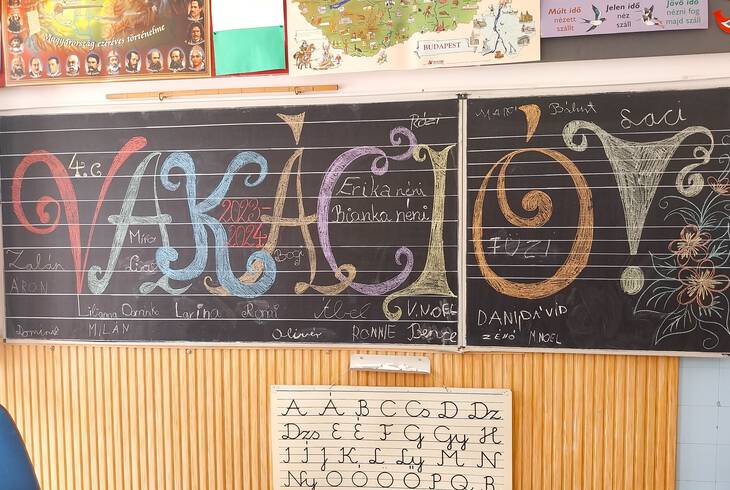 Magyarország ezeréves történelme
BUDAPEST
Múlt idő
nézett
szállt
Jelen idő
néz
száll
Jövő idő
nézni fog
majd száll
VAKÁCIÓ!
4.c
2023-
2024
Erika néni
Bianka néni
Rózi
Saci
Bálint
Míra
Bogi
FÜZI
Zalán
ÁRON
Lilianna Dominik Larina Romi Ábel V.NOEL
Dominik MILÁN Olivér RONNIE Bence
DANI DÁVID
ZÉNÓ M NOEL
A Á B C Cs D Dz
Dzs E É F G Gy H
I Í J K L Ly M N
Ny O Ó Ö Ő P Q R